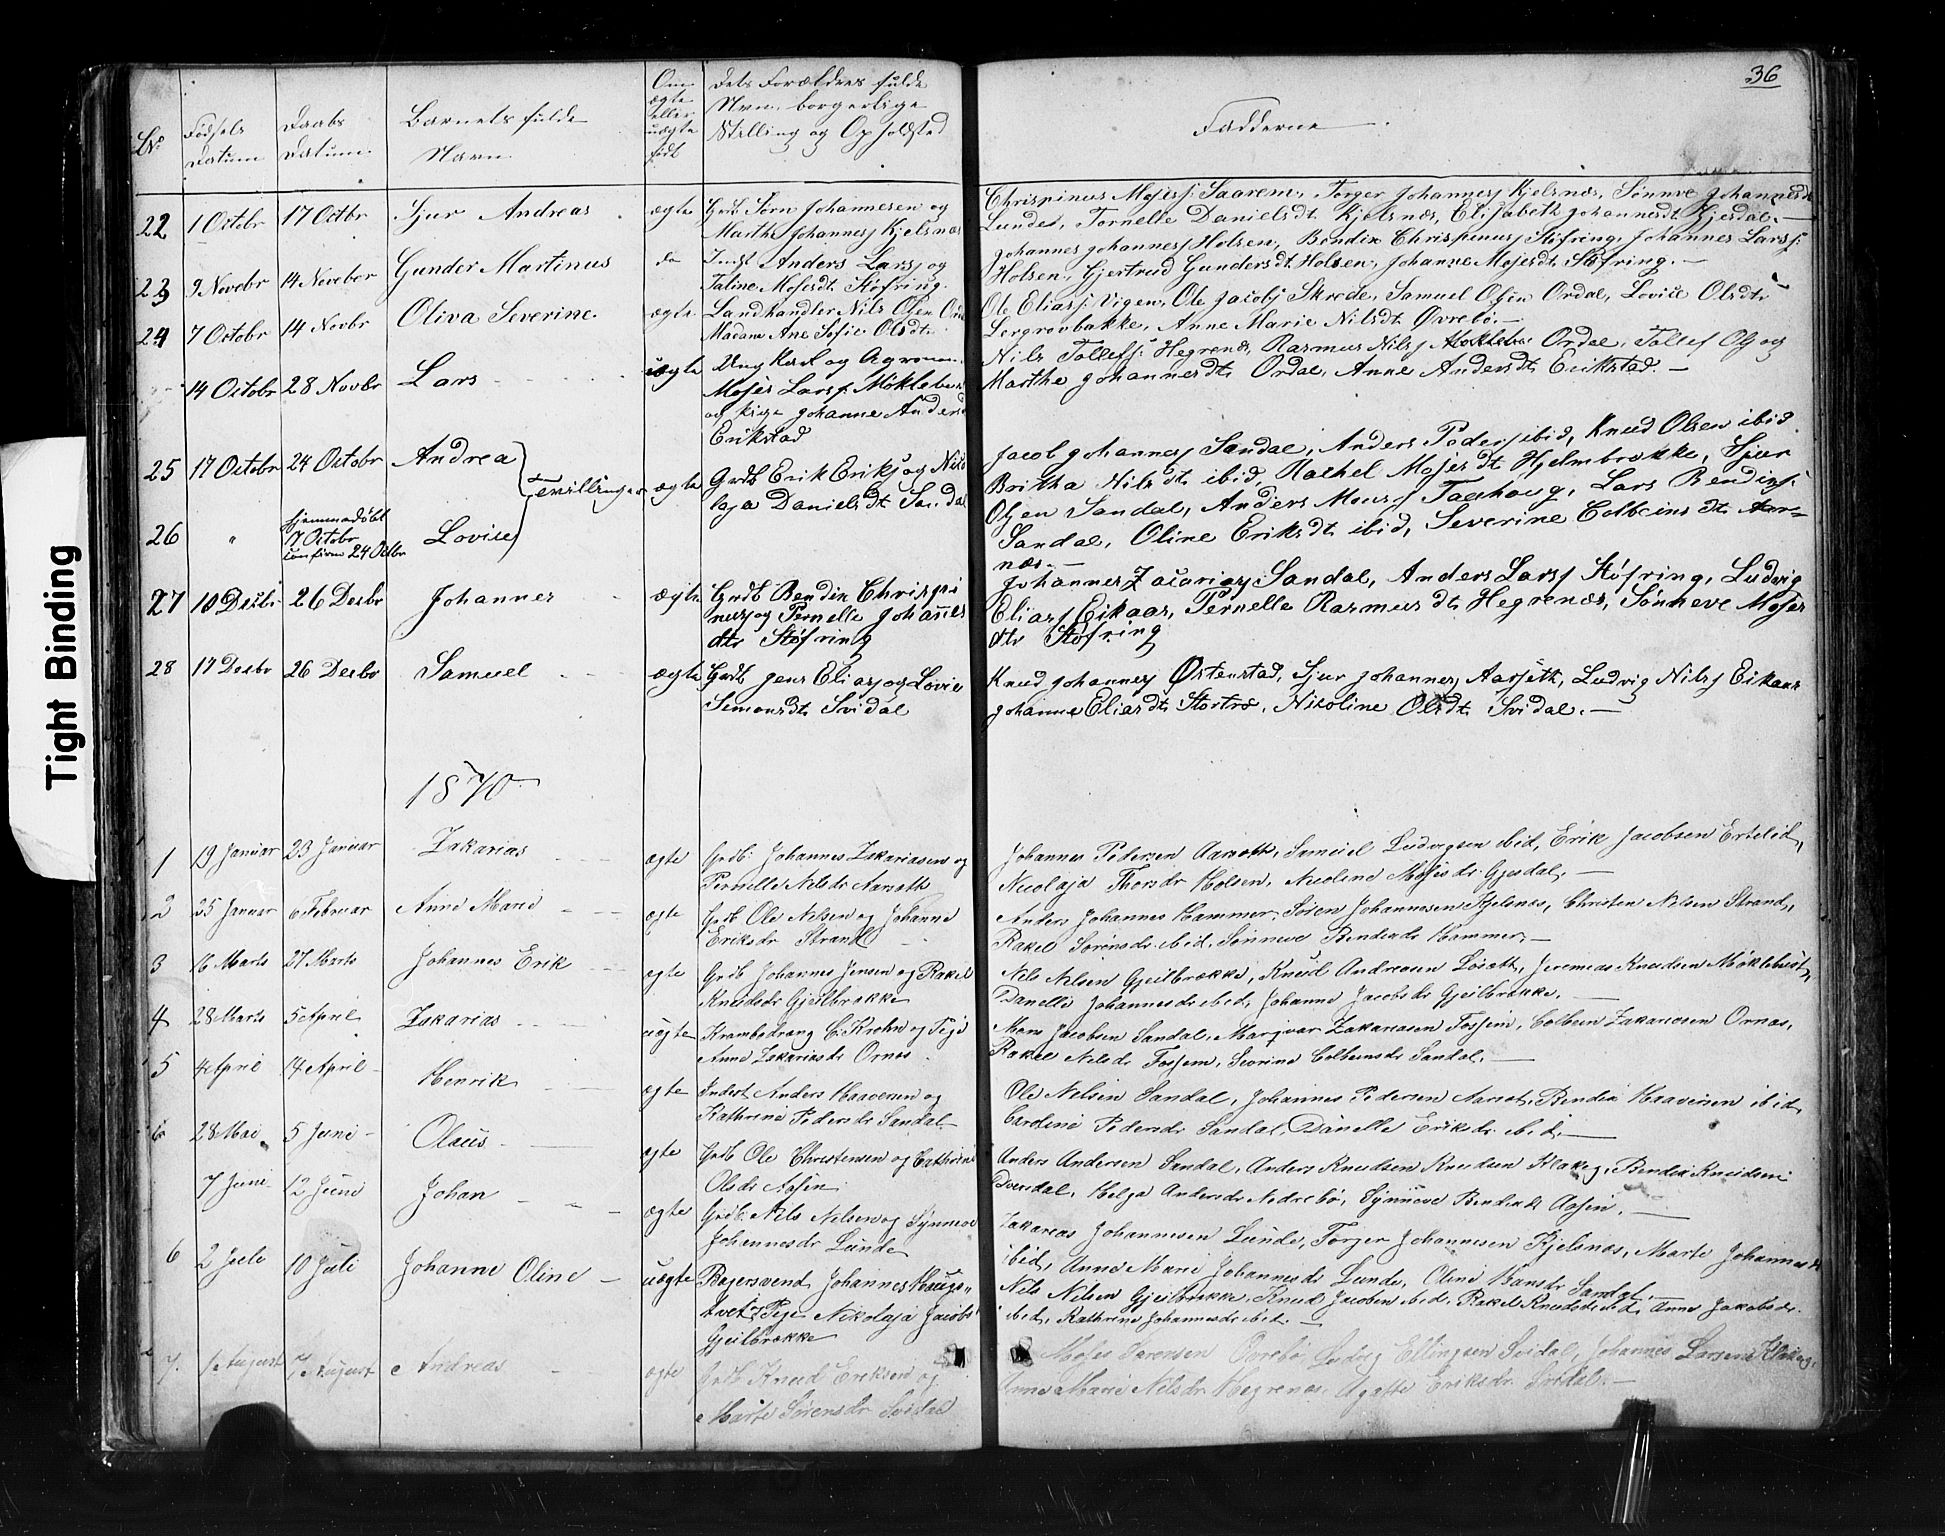 36
No
Fødsels
Datum
Daabs
Datum
Barnets fulde
Navn
Om
ægte
eller
uægte
født
Dets Forældres fulde
Navn, borgerlige
Stilling og Opholdsted
Fadderne
22 1 Octobr 17 Octbr Sjur Andreas ægte Grdb Sørn Johannesen og
Marthe Johannesj Kjelsnæs
Chrispinus Mosesj Saarem, Torger Johannesj Kjelsnæs, Sønnve Johannesdt
Lunde, Tornelle Danielsdt Kjelsnæs, Elisabeth Johannesdt Gjesdal.
23 9 Novebr 14 Noveber Gunder Martinus do Indst Anders Larsj og
Taline Mosesdt Støfring
Johannes Johannesj Holsen, Bendix Chrispinusj Støfring, Johannes Larsj
Holsen, Gjertrud Gundersdt Holsen, Johanne Mosesdt Støfring.
24 7 Octobr 14 Novbr Oliva Severine ægte Landhandler Nils Olsen
Madame Ane Sofie Olsdt
Ole Eliasj Vigen, Ole Jacobj Skrede, Samuel Olsen Ordal, Lovise Olsdt
Lergrovbakke, Anne Marie Nilsdt Øvrebø.
14 Octobr 28 Novbr Lars uægte Ungkarl og Agronom
Moses Larsj Møklebu
og Pige Johanne Anders
Erikstad
Nils Tollefsj Hegrenæs, Rasmus Nilsj Ordal, Tollef Olsj og
Marthe Johannesdt Ordal, Anne Andersdt Erikstad.
25 17 Octobr 24 Octobr Andrea Tvillinger ægte Grdb Erik Eriksj og Nico
laja Danielsdt Sandal
26 " hjemmedøbt
17 Octobr
confirm 24 Octbr Lovise
Jacob Johannesj Sandal, Anders Pedersj ibid, Knud Olsen ibid.
Britha Nilsdt ibid, Rachel Mosesdt Hjelmbrække, Sjur
Olsen Sandal, Anders Monsj Taahoug, Lars Bendixj
Sandal, Oline Eriksdt ibid, Severine Colbeinsdt Aar=
næs.
27 10 Desbr 26 Desbr Johannes ægte Grdb Bendix Chrispi
nusj og Pernelle Johannes
dtr Støfring
Johannes Zacariasj Sandal, Anders Larsj Støfring, Ludvig
Eliasj Eikaas, Pernelle Rasmusdt Hegrenæs, Sønneve Moses
dtr Støfring
28 17 Desbr 26 Desbr Samuel ægte Grdb Jens Eliasj og Lovise
Simonsdt Svidal
Knud Johannesj Østenstad, Sjur Johannesj Aarseth, Ludvig Nilsj Eikaas
Johanne Eliasdt Stortræ, Nicoline Olsdt Svidal.
1870
1 19 Januar 23 Januar Zakarias ægte Grdb: Johannes Zakariasen og
Pernelle Nilsdr Aarseth
Johannes Pedersen Aarseth, Samuel Ludvigsen ibid, Erik Jacobsen Erteled,
Nicolaja Thorsdr Holsen, Nicoline Mosesdr Gjesdal.
2 25 Januar 6 Februar Anne Marie ægte Grdb Ole Nilsen og Johanne
Eriksdr Strand
Anders Johannes Hammer, Søren Johannesen Kjelsnes, Christen Nilsen Strand,
Rakel Sørensdr ibid, Sønneve Bendixdr Hammer.
3 16 Marts 27 Marts Johannes Erik ægte Grdb Johannes Jensen og Rakel
Knudsdr Gjeilbrække
Nils Nilsen Gjeilbrække, Knud Andreasen Løseth, Jeremias Knudsen Møklebust,
Danelle Johannesdr ibid, Johanne Jacobsdr Gjeilbrække.
4 28 Marts 5 April Zakarias uægte Krambodreng C. Krohn og Pige
Anne Zakariasdr Ornes
Mons Jacobsen Sandal, Margvar Zakariasen Fossem, Colbein Zakariasen Ornæs,
Rakel Nilsdr Fossem, Severine Colbensdr Sandal.
5 4 April 14 April Henrik ægte Inderst Anders Haaversen og
Kathrine Pedersdr Sandal
Ole Nilsen Sandal, Johannes Pedersen Aarset, Bendix Haaversen ibid,
Caroline Pedersdr Sandal, Danelle Eriksdr ibid.
6 28 Mai 5 Juni Olaus ægte Grdb Ole Christensen og Cathrine
Olsdr Aasen
Anders Andersen Sandal, Anders Knudsen Knudsen Klakeg, Bendix Knudsen
Dvendal, Helga Andersdr Nedrebø, Synneve Bendixdr Aasen.
7 Juni 12 Juni Johan ægte Grdb: Nils Nilsen og Synneve
Johannesdr Lunde
Zakarias Johannesen Lunde, Torger Johannesen Kjelsnæs, Marte Johannesdr
ibid, Anne Marie Johannesdr Lunde, Oline Hansdr Sandal.
6 2 Juli 10 Juli Johanne Oline uægte Bajersvend Johannes Haugs=
tvet, Pige Nikolaja Jacobs
Gjeilbrække
Nils Nilsen Gjeilbrække, Knud Jacobsen ibid, Rakel Knudsdr ibid, Anne Jakobsdr
ibid, Kathrine Johannesdr ibid.
7. 1 August 7 August Andreas ægte Grdb Knud Eriksen og
Marte Sørensdr Svidal
Moses Sørensen Øvrebø, Ludvig Ellingsen Svidal, Johannes Larsen Klakeg,
Anne Marie Nilsdr Hegrenæs, Agathe Eriksdr Svidal.
Tight Binding